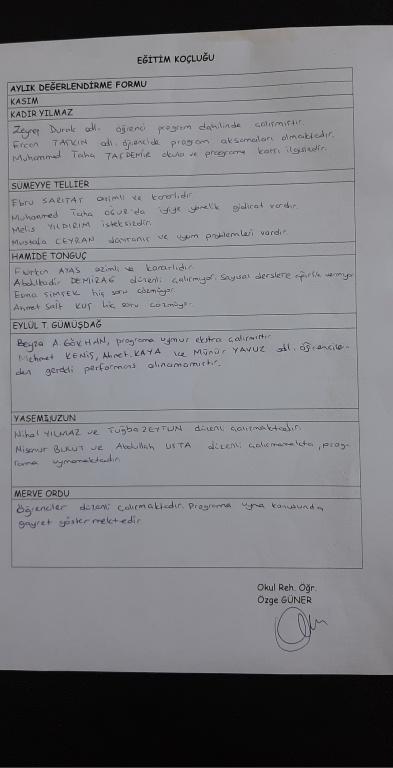 EĞİTİM KOÇLUĞU
AYLIK DEĞERLENDİRME FORMU
KASIM
KADİR YILMAZ
Zeynep Durak adlı öğrenci program dahilinde çalışmıştır.
Ercan TAŞKIN adlı öğrencide program aksamaları olmaktadır.
Muhammed Taha TAŞDEMİR okula ve programa karşı ilgisizdir.
SÜMEYYE TELLİER
Ebru SARITAŞ azimli ve kararlıdır.
Muhammed Taha OĞUR'da iyiye yönelik gidişat vardır.
Melis YILDIRIM isteksizdir.
Mustafa CEYRAN davranış ve uyum problemleri vardır.
HAMİDE TONGUÇ
Furkan AYAS azimli ve kararlıdır.
Abdulkadir DEMİRAĞ düzenli çalışmıyor. Sayısal derslere ağırlık vermiyor
Esma ŞİMŞEK hiç soru çözmüyor.
Ahmet Sait KUŞ hiç soru çözmüyor.
EYLÜL T. GÜMÜŞDAĞ
Beyza A. GÖKHAN, programa uymuş ekstra çalışmıştır.
Mehmet KENİŞ, Ahmet KAYA ve Münür YAVUZ adlı öğrenciler-
den gerekli performans alınamamıştır.
YASEMİN UZUN
Nihal YILMAZ ve Tuğba ZEYTUN düzenli çalışmaktadır.
Nisanur BULUT ve Abdullah USTA düzenli çalışmamakta, prog-
rama uymamaktadır.
MERVE ORDU
Öğrenciler düzenli çalışmaktadır. Programa uyma konusunda
gayret göstermektedir
Okul Reh. Öğr.
Özge GÜNER